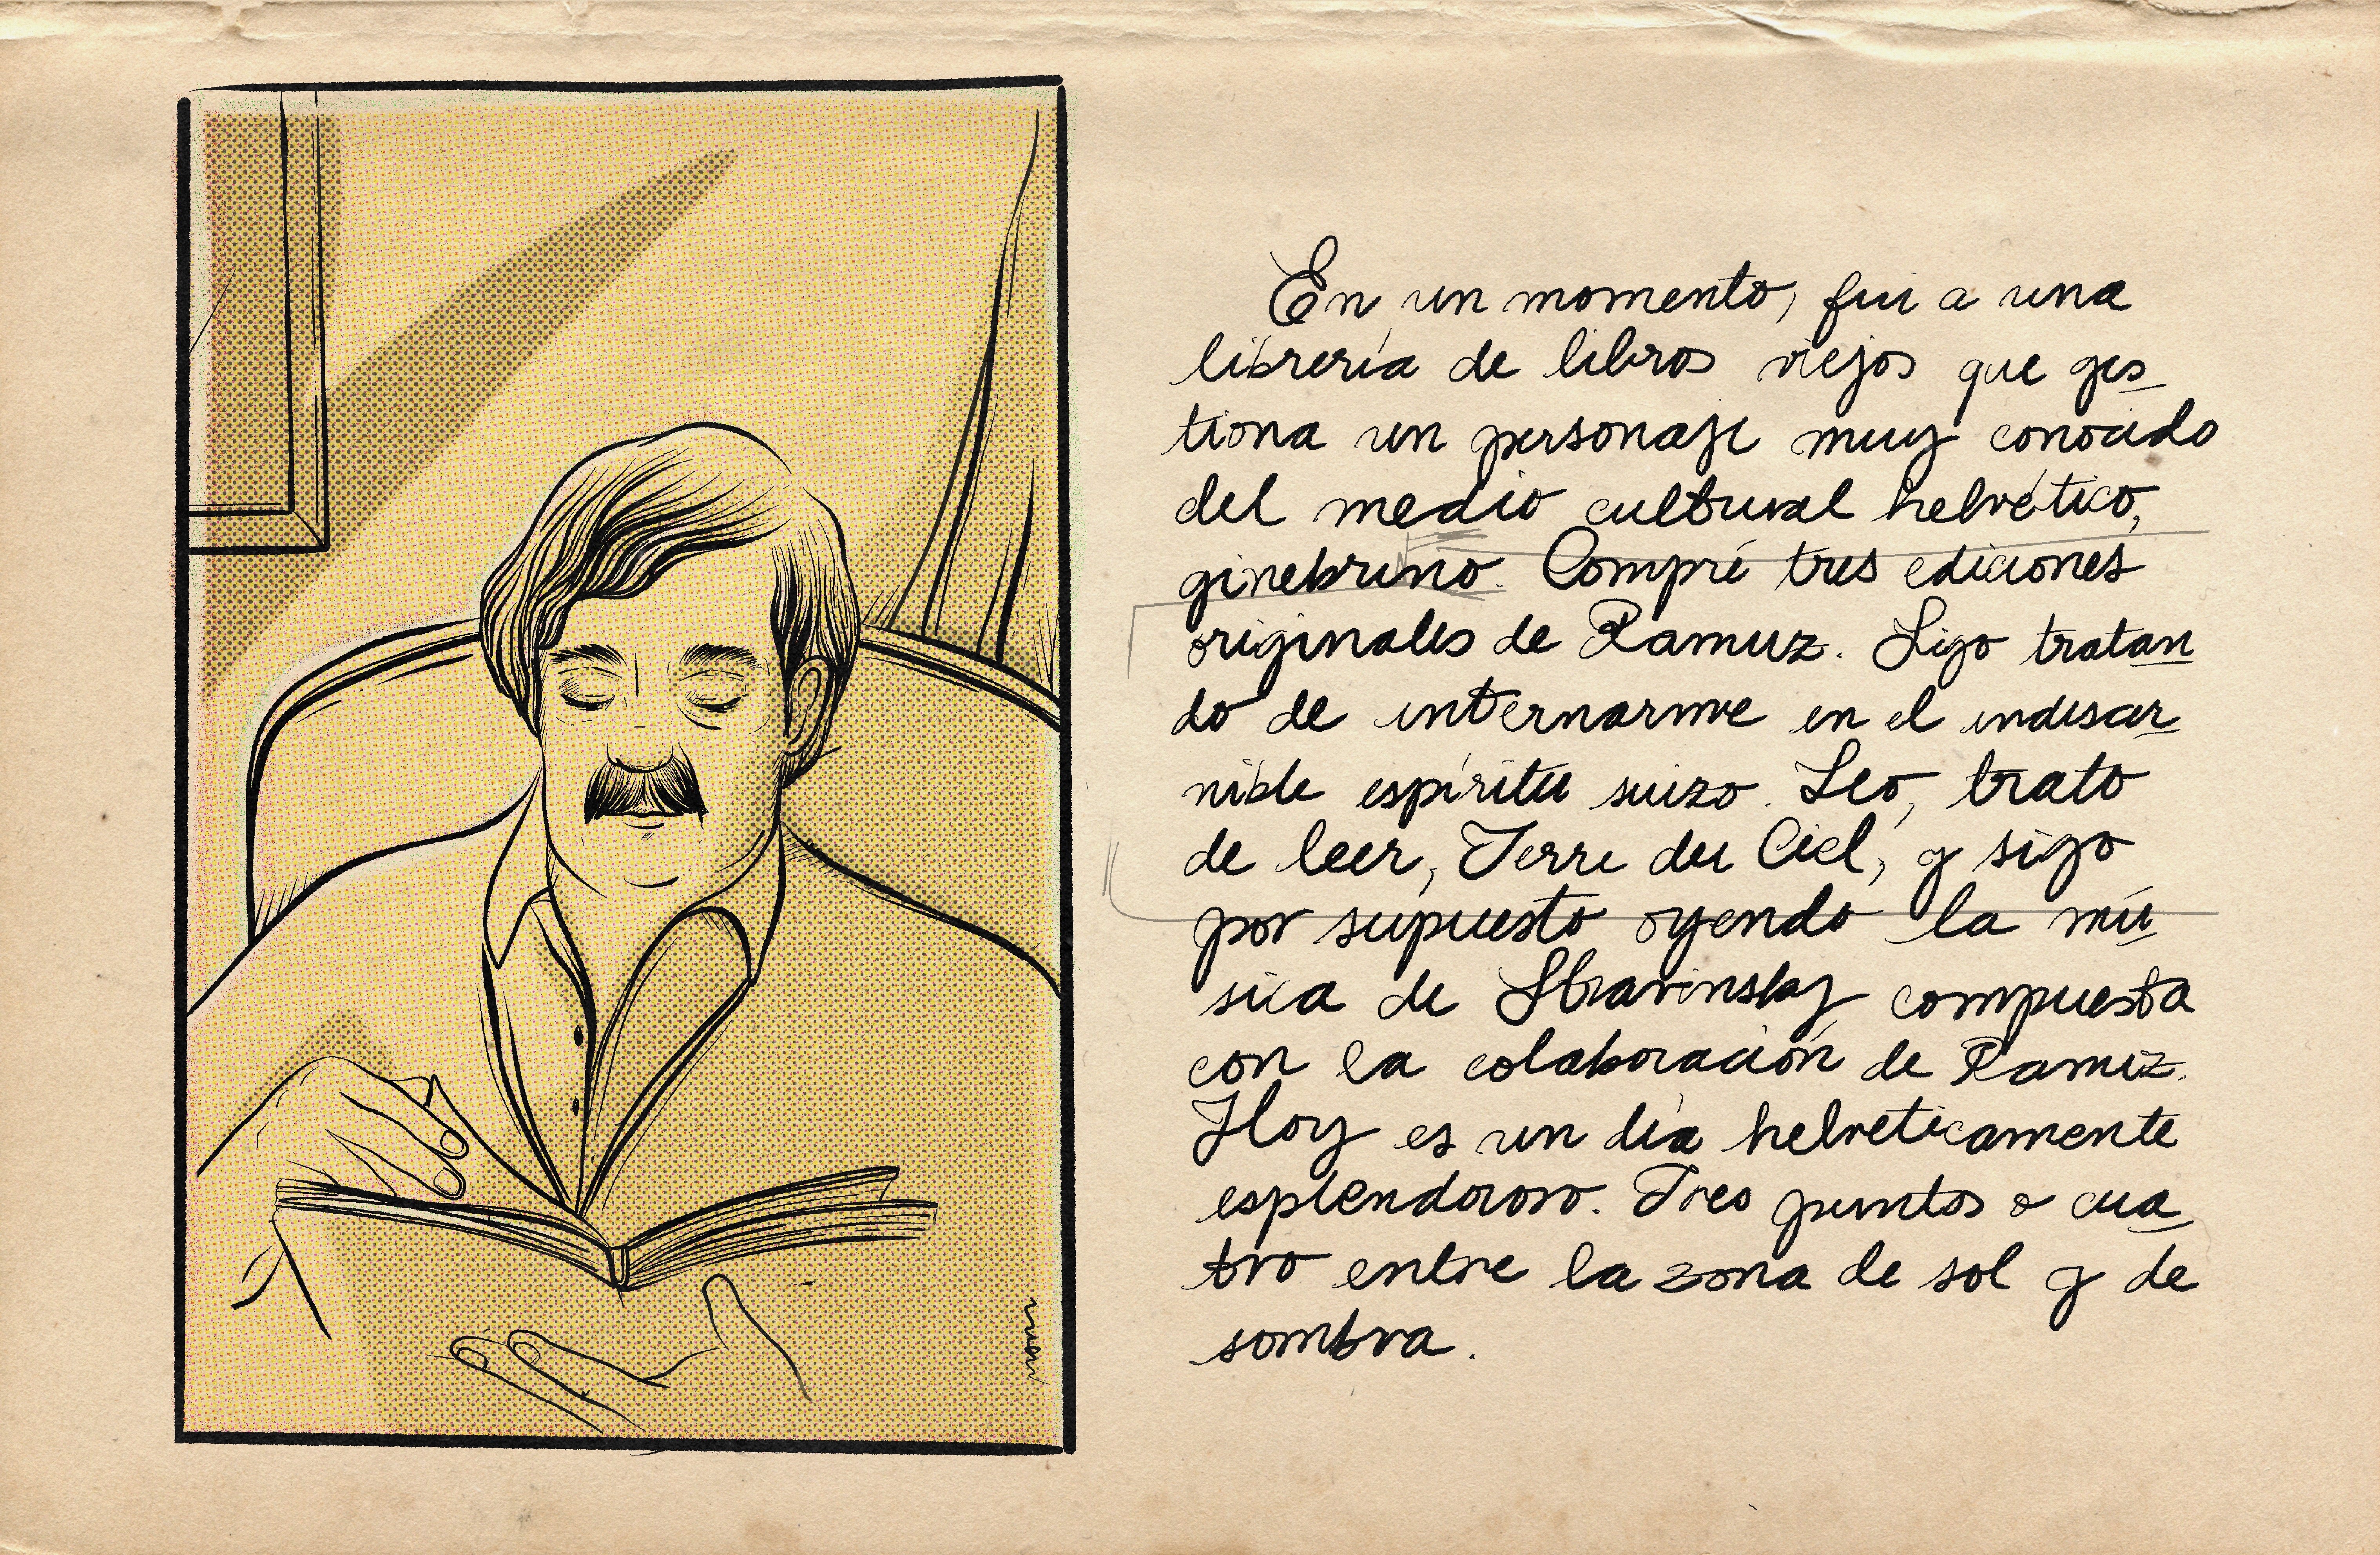 En un momento, fui a una
librería de libros viejos que ges_
tiona un personaje muy conocido
del medio cultural helvético,
ginebrino. Compré tres ediciones
originales de Ramuz. Sigo tratan
do de internarme en el indiscer
nible espíritu suizo. Leo, trato
de leer, Terre du Ciel, y sigo
por supuesto oyendo la mú
sica de Stravinsky compuesta
con la colaboración de Ramuz.
Hoy es un día helveticamente
esplendoroso. Tres puntos o cua
tro entre la zona de sol y de
sombra.